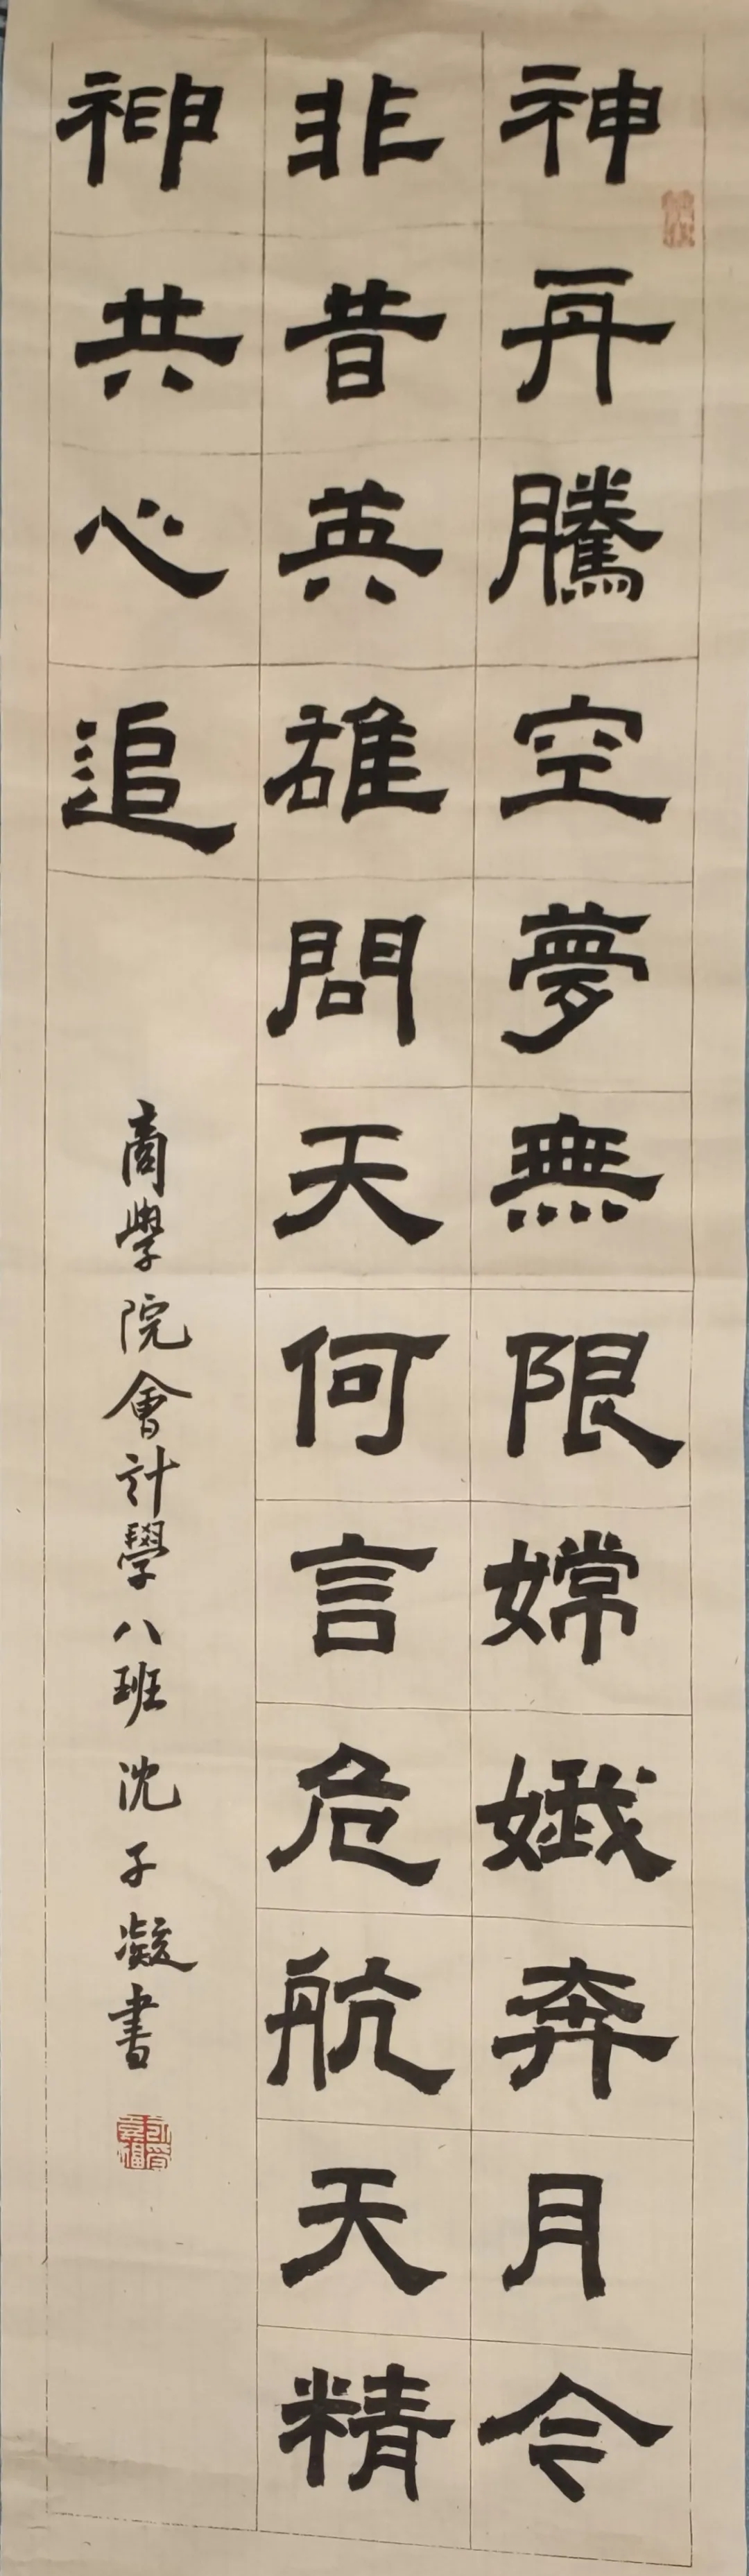 神舟騰空夢無限嫦娥奔月今
非昔英雄問天何言危航天精
神共心追
商學院會計學八班沈子凝書
永受嘉福